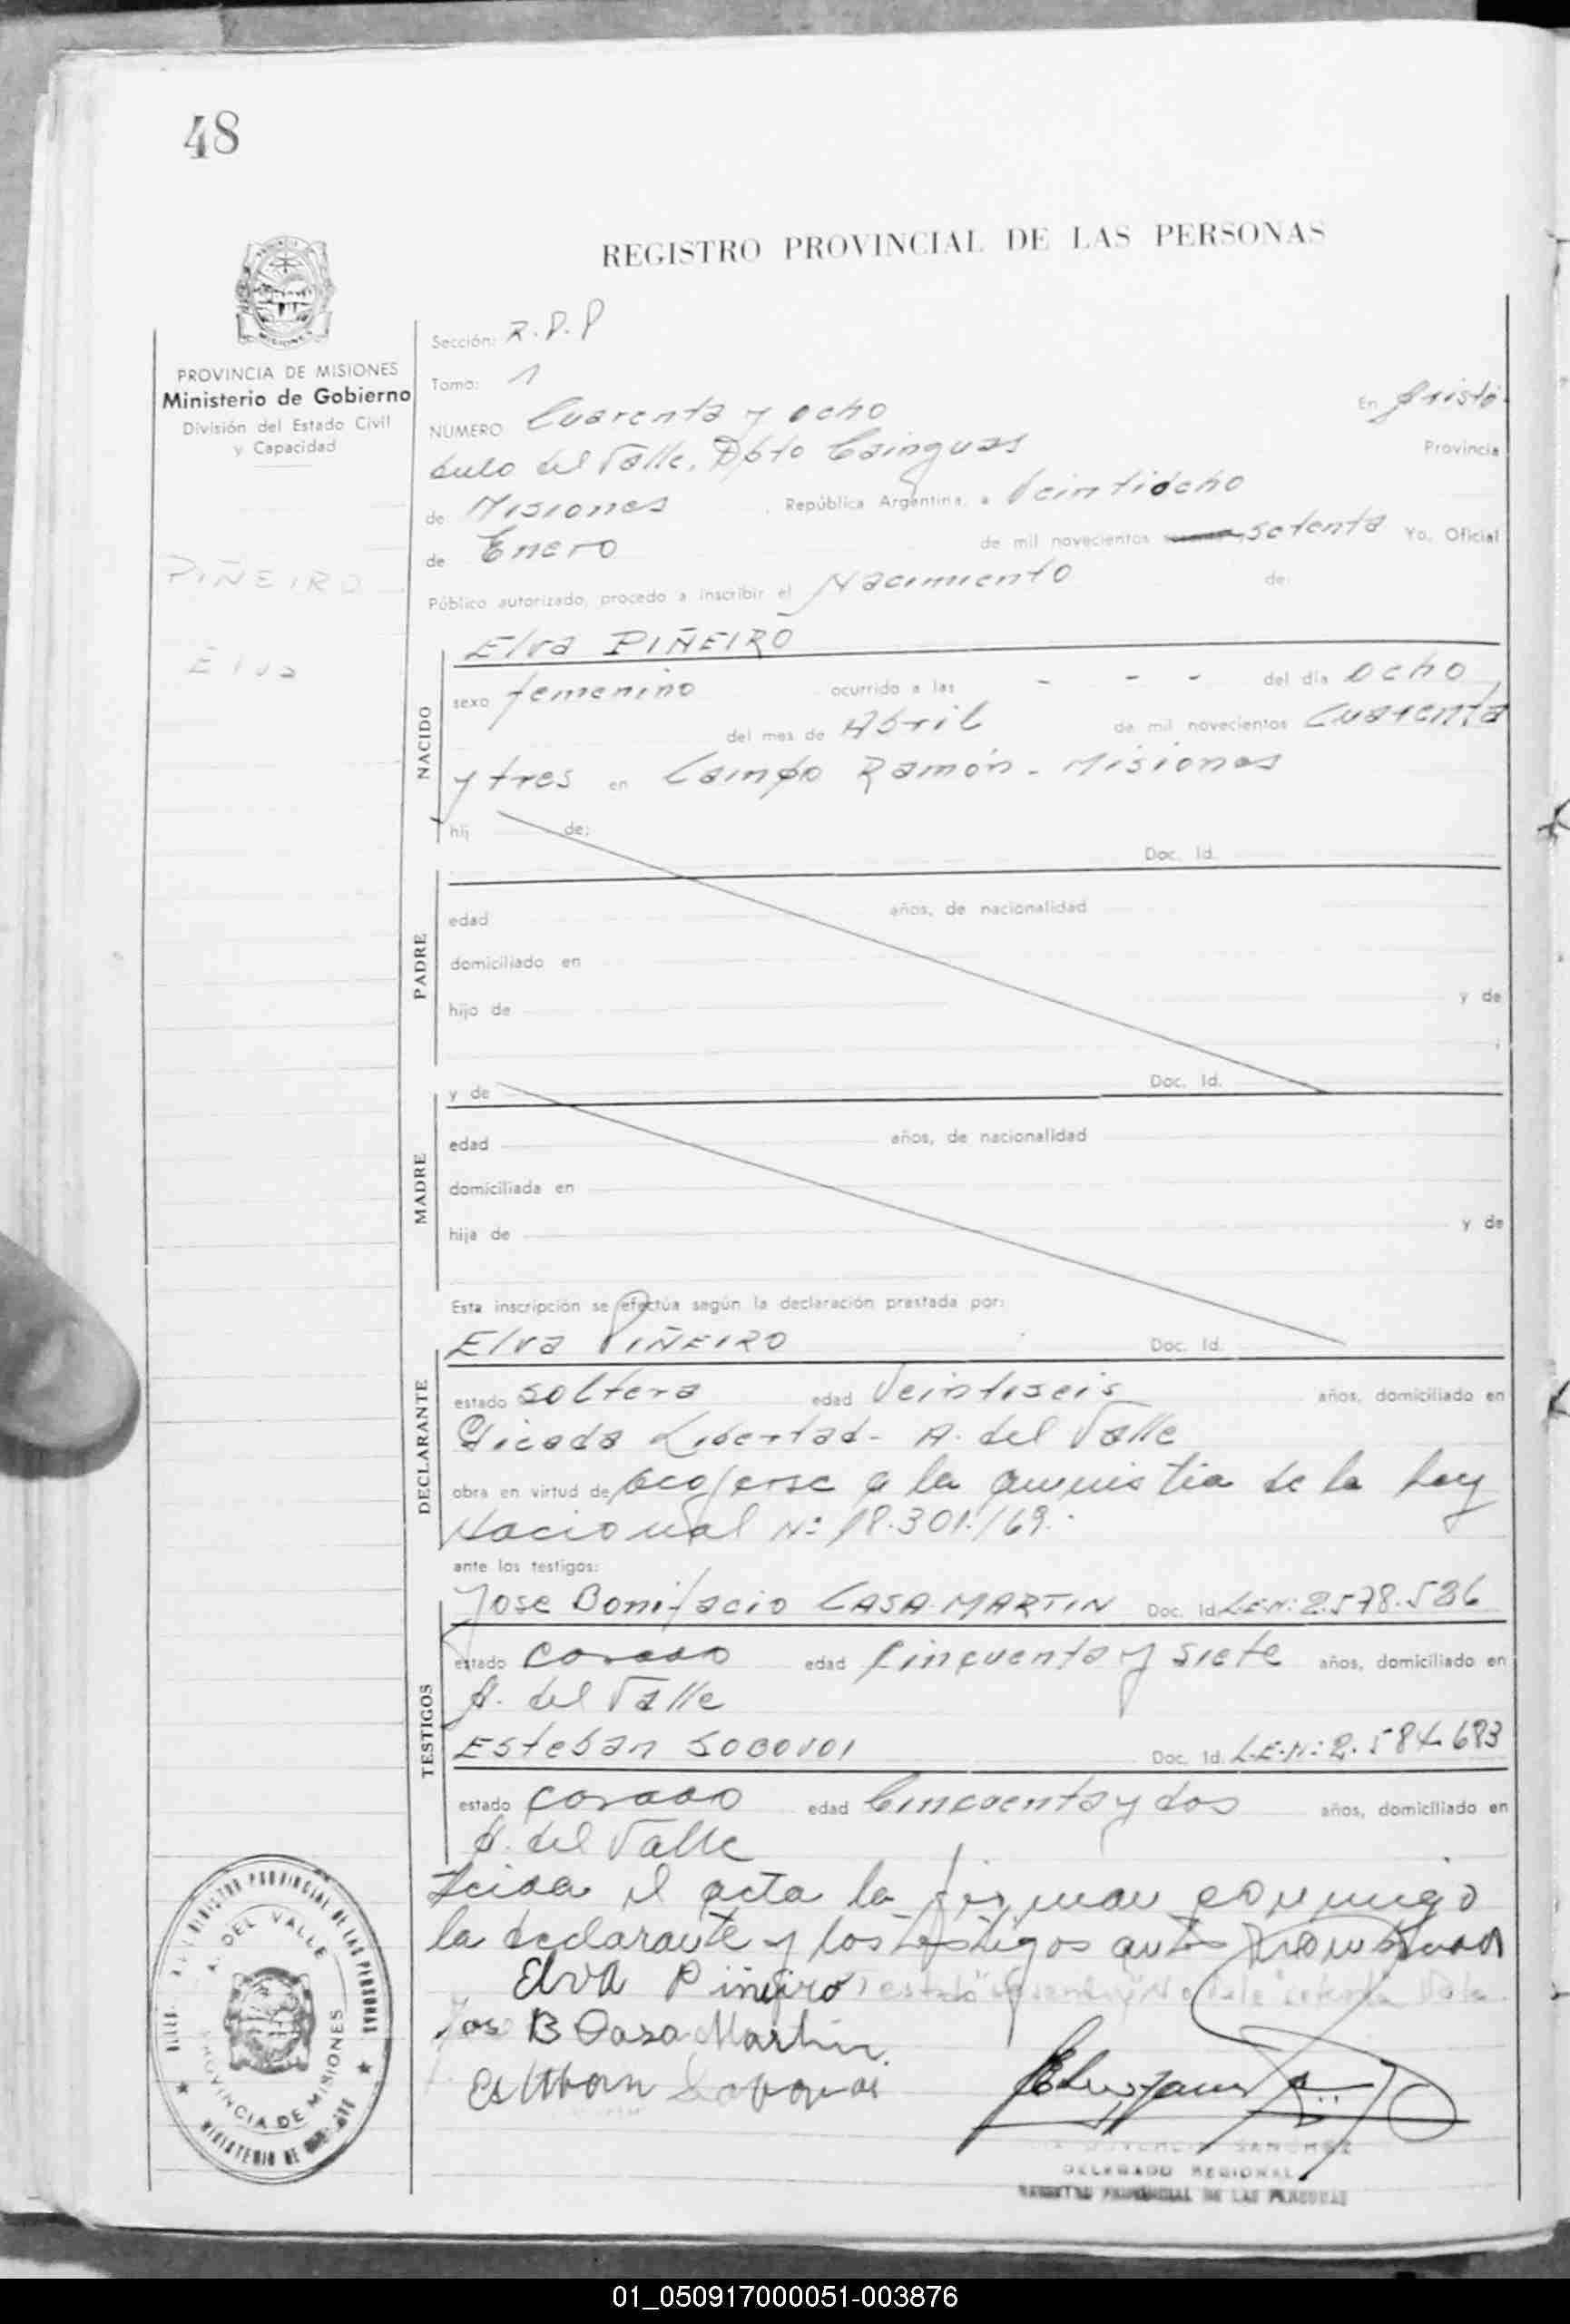 48
REGISTRO PROVINCIAL DE LAS PERSONAS
PROVINCIA DE MISIONES
Ministerio de Gobierno
División del Estado Civil
y Capacidad
PIÑEIRO
Elva
Sección: R.P.P
Tomo: 1
NUMERO Cuarenta y ocho En Aristó-
bulo del Valle, Dpto Cainguas Provincia
de Misiones República Argentina, a Veintiocho
de Enero de mil novecientos setenta Yo, Oficial
Público autorizado, procedo a inscribir el Nacimiento de:
NACIDO
Elva PIÑEIRO
sexo femenino ocurrido a las - - - del día ocho
del mes de Abril de mil novecientos Cuarenta
y tres en Campo Ramón - Misiones
hij de:
Doc. Id.
PADRE
edad años, de nacionalidad
domiciliado en
hijo de y de
y de Doc. Id.
MADRE
edad años, de nacionalidad
domiciliada en
hija de y de
Esta inscripción se efectúa según la declaración prestada por:
DECLARANTE
Elva PIÑEIRO Doc. Id.
estado soltera edad Veintiseis años, domiciliado en
Picada Libertad - A. del Valle
obra en virtud de acojerse a la amnistia de la Ley
Nacional Nº 18.301/69.
ante los testigos:
TESTIGOS
Jose Bonifacio CASA-MARTIN Doc. Id. L.E.Nº: 2.578.536
estado casado edad Cincuenta y siete años, domiciliado en
A. del Valle
Esteban Doc. Id. L.E.Nº: 2.584.683
estado casado edad Cincuenta y dos años, domiciliado en
A. del Valle
Leida el acta la firman conmigo
la declarante y los testigos antes nombrados
Elva Piñeiro
Jose B Casa-Martin
Esteban
A. DEL VALLE
PROVINCIA DE MISIONES
REGISTRO PROVINCIAL DE LAS PERSONAS
MINISTERIO DE
SANCHEZ
DELEGADO REGIONAL
REGISTRO PROVINCIAL DE LAS PERSONAS
01_050917000051-003876